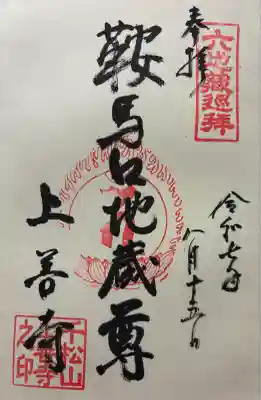 六地蔵巡拝
奉拝
令和七年
八月十五日
鞍馬口地蔵尊
上善寺
千松山
上善寺
之印